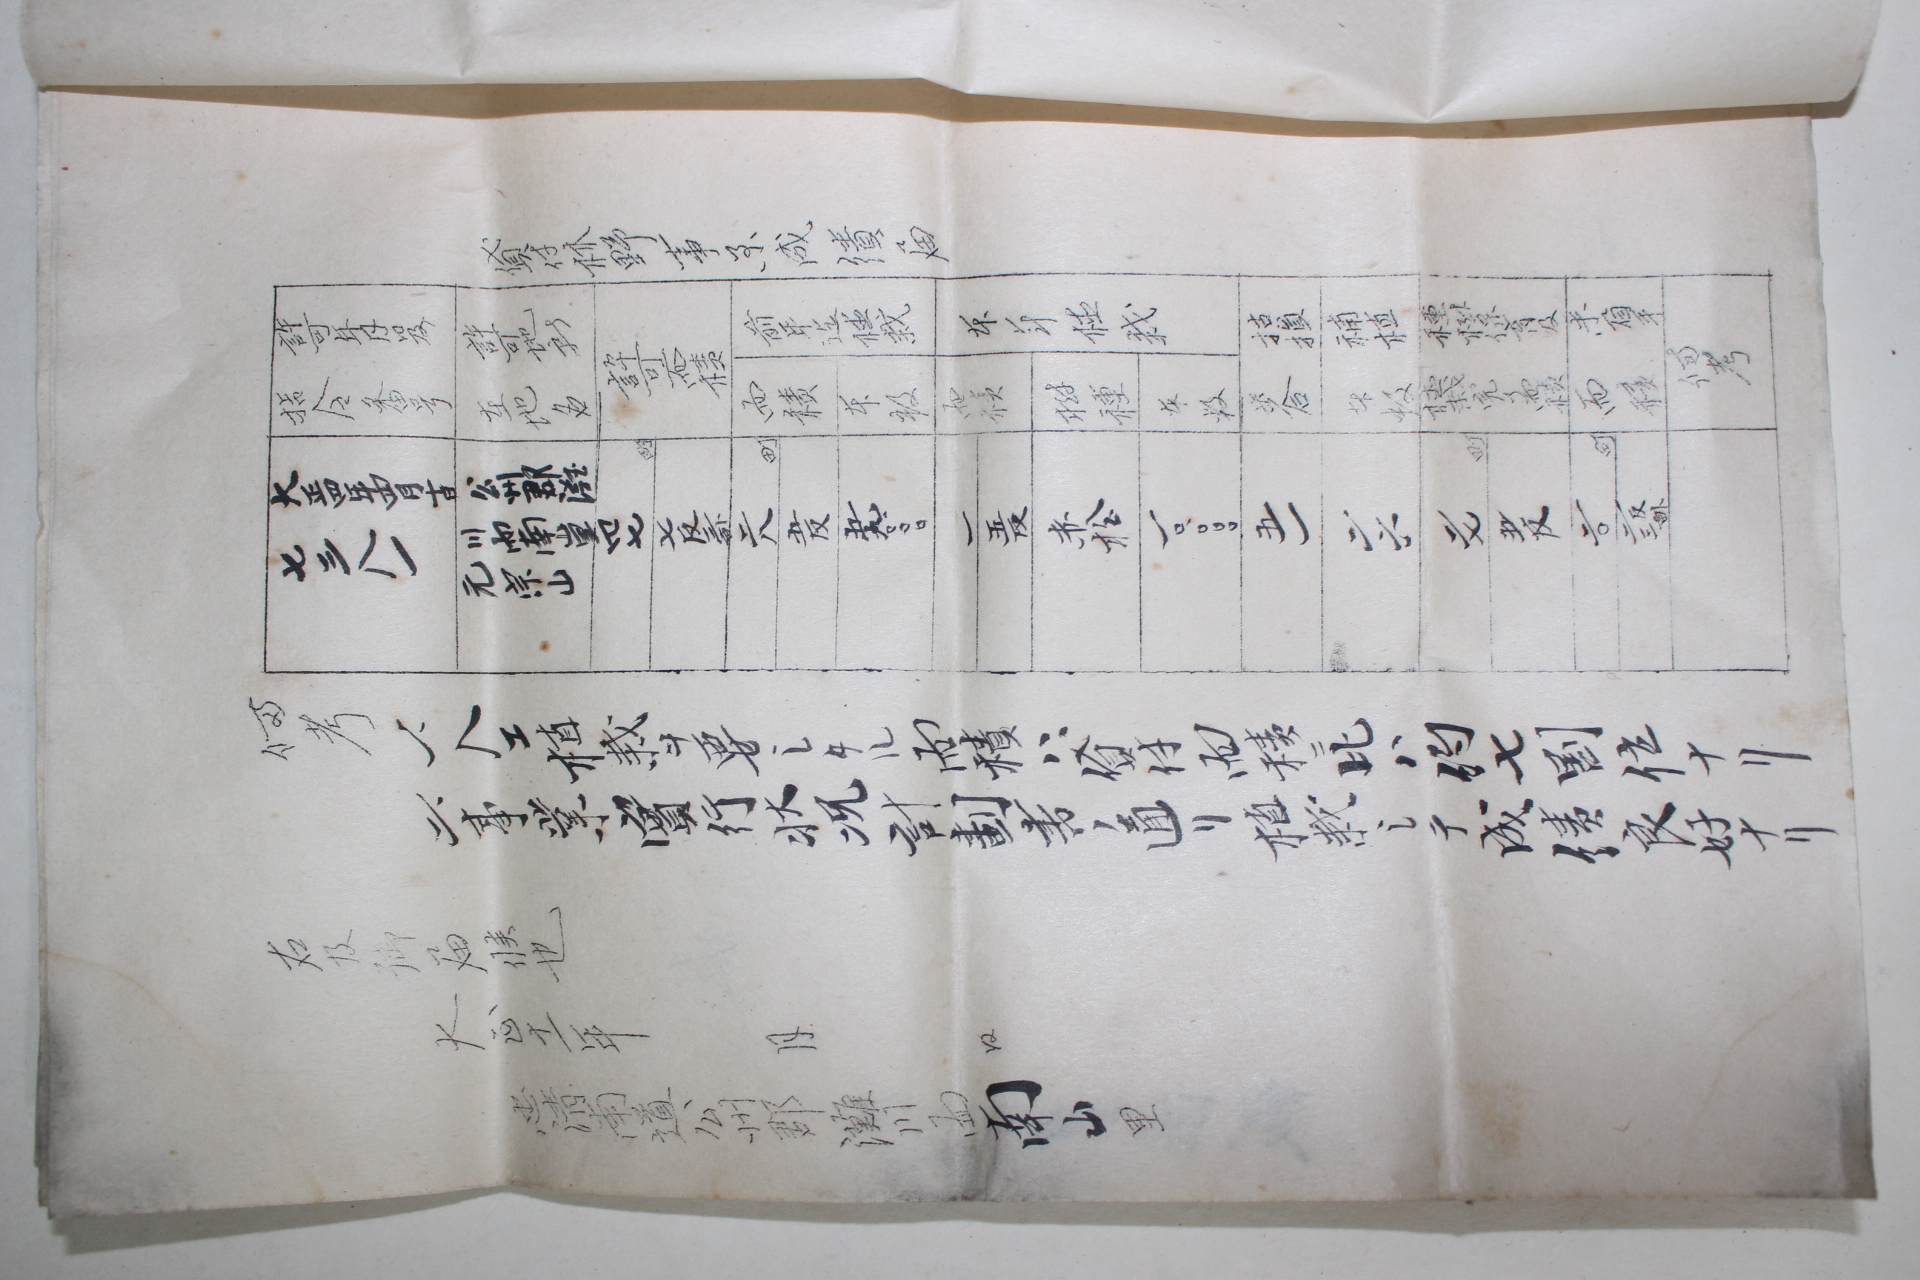 貸付林野事業成績届
許可年月日及
指令番号
許可地所
在地名
許可面積
前年迄植栽
面積
本数
本年植栽
面積
樹種
本数
枯損
歩合
補植
本数
種樹保育及
植栽完了面積
未著手
面積
備考
大正四年四月
七三八一
公州郡灘
川面南山里
元宗山
町
四七
七反
町
二八
五反
一五反
赤松
一〇、〇〇〇
五一
二六
町
二七
五反
町
二〇
二反三
備考
一、人工植栽ヲ要シタル面積ハ貸付面積ニ比ハ約七割位ナリ
二、事業實行状况計劃書ノ通リ植栽シテ成績良好ナリ
右及御届候也
大正十一年 月 日
忠清南道公州郡灘川面南山里